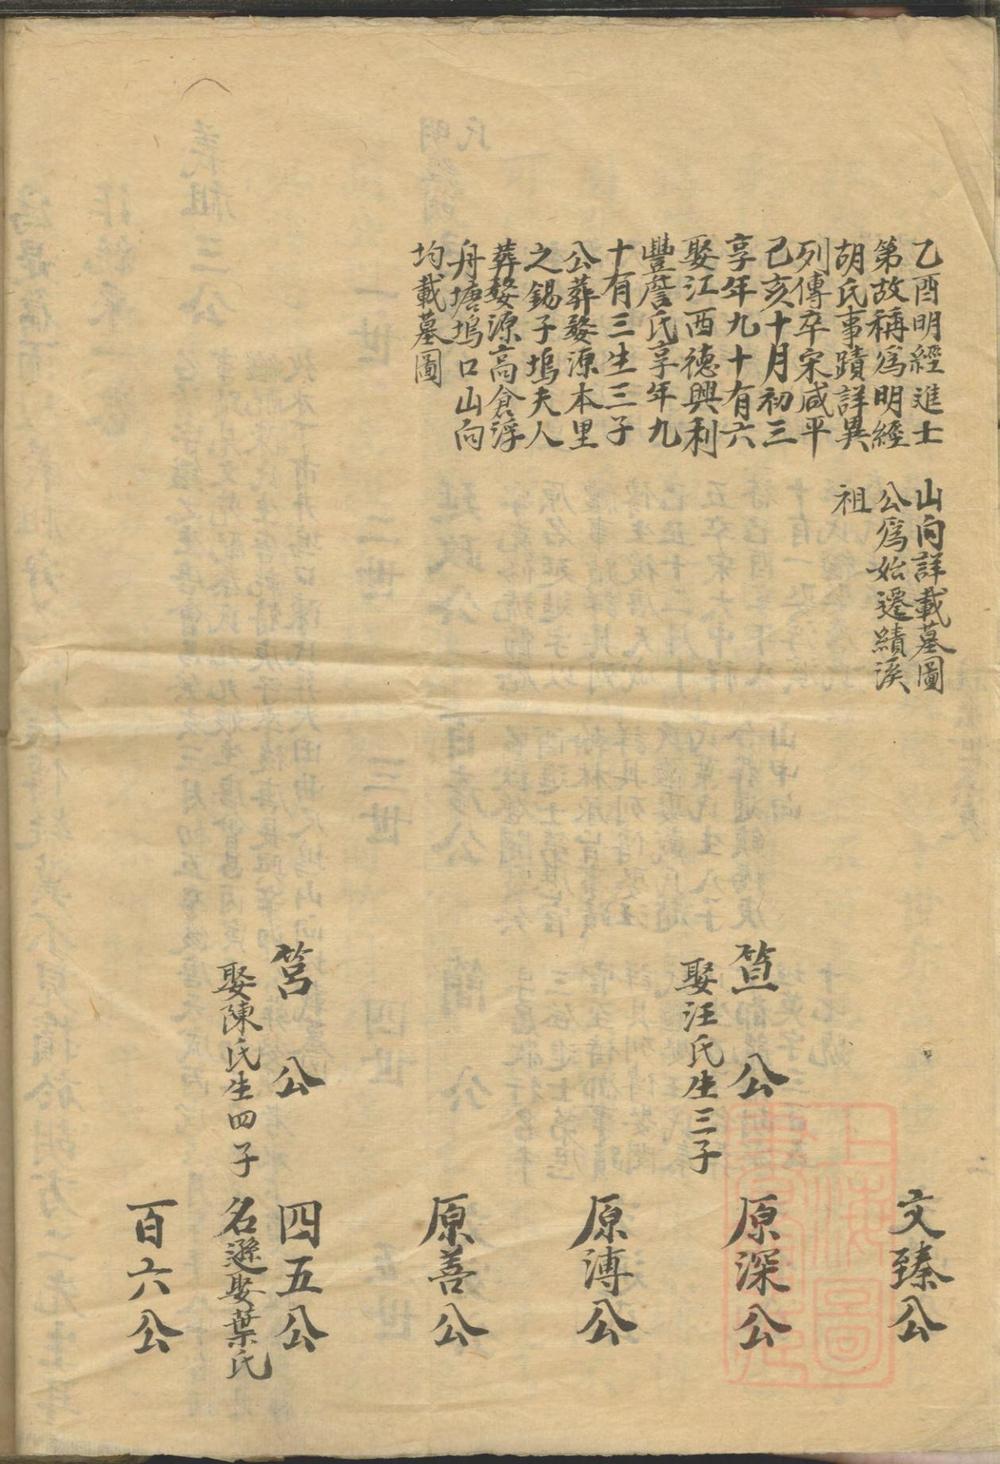 乙酉明經進士
第故稱爲明經
胡氏事蹟詳異
列傳卒宋咸平
己亥十月初三
享年九十有六
娶江西德興利
豐詹氏享年九
十有三生三子
公葬婺源本里
之錫子塢夫人
葬婺源高倉浮
舟塘塢口山向
均載墓圖
山向詳載墓圖
公爲始遷績溪
祖
笪公
娶汪氏生三子
筥公
娶陳氏生四子
文臻公
原深公
原溥公
原善公
四五公
名遜娶葉氏
百六公